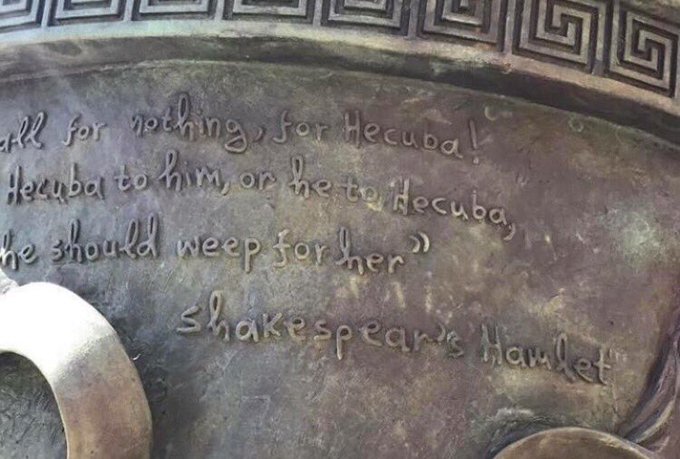 all for nothing, for Hecuba!
Hecuba to him, or he to Hecuba,
he should weep for her”
Shakespear's Hamlet